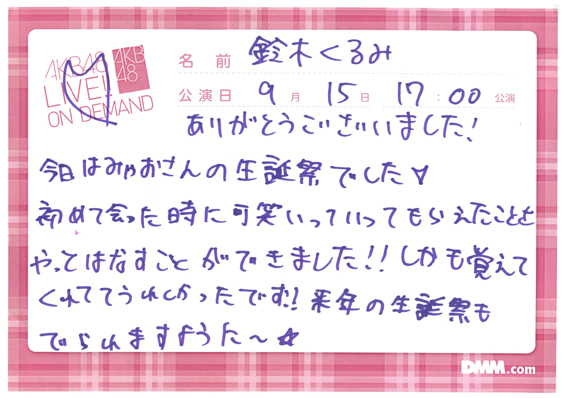 AKB48
LIVE!!
ON DEMAND
AKB
48
名前 鈴木くるみ
公演日 9月 15日 17:00 公演
ありがとうございました!
今日はみゃおさんの生誕祭でした
初めて会った時に可笑いっていってもらえたことを
やっとはなすことができました!!しかも覚えて
くれててうれしかったです!来年の生誕祭も
でられますように〜☆
DMM.com